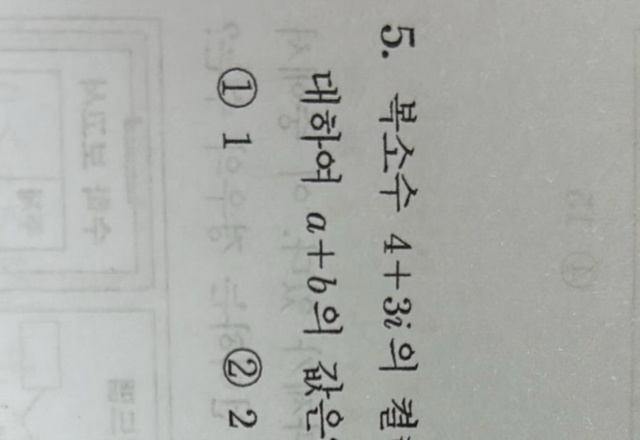 5. 복소수 4+3i의
대하여 a+b의 값은
① 1 ② 2